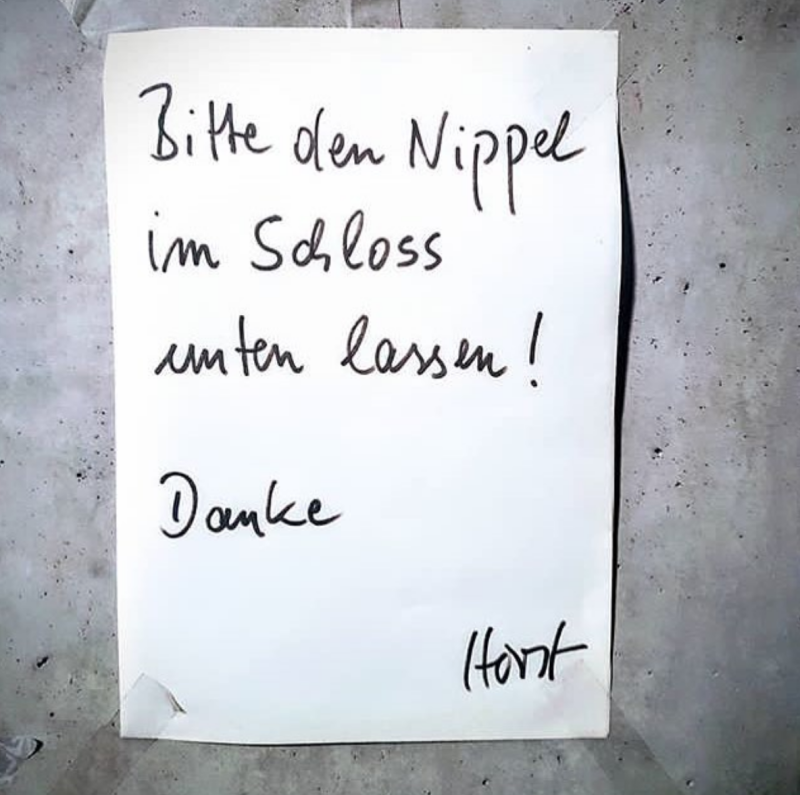 Bitte den Nippel
im Schloss
unten lassen!
Danke
Horst